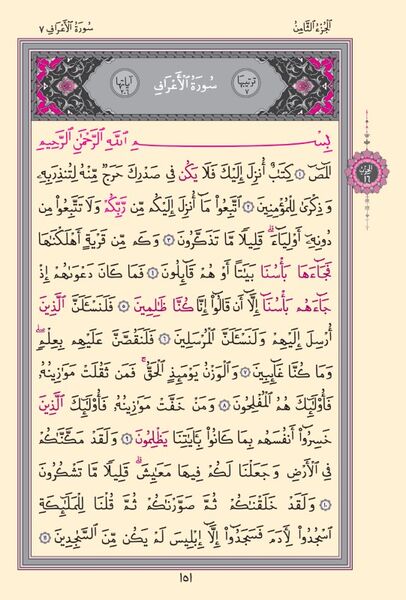 سورة الأعراف ٧ الجزء الثامن
ترتيبها ٧ سُورَةُ الْأَعْرَافِ آياتها ٢٠٦
بِسْمِ اللَّهِ الرَّحْمَٰنِ الرَّحِيمِ
الٓمٓصٓ ۝١ كِتَٰبٌ أُنزِلَ إِلَيْكَ فَلَا يَكُن فِي صَدْرِكَ حَرَجٌ مِّنْهُ لِتُنذِرَ بِهِۦ
وَذِكْرَىٰ لِلْمُؤْمِنِينَ ۝٢ ٱتَّبِعُوا۟ مَآ أُنزِلَ إِلَيْكُم مِّن رَّبِّكُمْ وَلَا تَتَّبِعُوا۟ مِن
دُونِهِۦٓ أَوْلِيَآءَ ۗ قَلِيلًا مَّا تَذَكَّرُونَ ۝٣ وَكَم مِّن قَرْيَةٍ أَهْلَكْنَٰهَا
فَجَآءَهَا بَأْسُنَا بَيَٰتًا أَوْ هُمْ قَآئِلُونَ ۝٤ فَمَا كَانَ دَعْوَىٰهُمْ إِذْ
جَآءَهُم بَأْسُنَآ إِلَّآ أَن قَالُوٓا۟ إِنَّا كُنَّا ظَٰلِمِينَ ۝٥ فَلَنَسْـَٔلَنَّ ٱلَّذِينَ
أُرْسِلَ إِلَيْهِمْ وَلَنَسْـَٔلَنَّ ٱلْمُرْسَلِينَ ۝٦ فَلَنَقُصَّنَّ عَلَيْهِم بِعِلْمٍ ۖ
وَمَا كُنَّا غَآئِبِينَ ۝٧ وَٱلْوَزْنُ يَوْمَئِذٍ ٱلْحَقُّ ۚ فَمَن ثَقُلَتْ مَوَٰزِينُهُۥ
فَأُو۟لَٰٓئِكَ هُمُ ٱلْمُفْلِحُونَ ۝٨ وَمَنْ خَفَّتْ مَوَٰزِينُهُۥ فَأُو۟لَٰٓئِكَ ٱلَّذِينَ
خَسِرُوٓا۟ أَنفُسَهُم بِمَا كَانُوا۟ بِـَٔايَٰتِنَا يَظْلِمُونَ ۝٩ وَلَقَدْ مَكَّنَّٰكُمْ
فِي ٱلْأَرْضِ وَجَعَلْنَا لَكُمْ فِيهَا مَعَٰيِشَ ۗ قَلِيلًا مَّا تَشْكُرُونَ
۝١٠ وَلَقَدْ خَلَقْنَٰكُمْ ثُمَّ صَوَّرْنَٰكُمْ ثُمَّ قُلْنَا لِلْمَلَٰٓئِكَةِ
ٱسْجُدُوا۟ لِـَٔادَمَ فَسَجَدُوٓا۟ إِلَّآ إِبْلِيسَ لَمْ يَكُن مِّنَ ٱلسَّٰجِدِينَ ۝١١
الحزب ١٦
١٥١